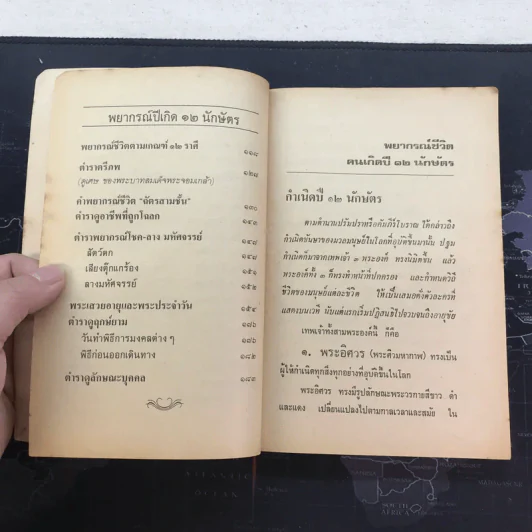 พยากรณ์ปีเกิด ๑๒ นักษัตร
พยากรณ์ชีวิตตามเกณฑ์ ๑๒ ราศี ๑๑๘
ตำราตรีภพ ๑๒๘
(ดูเศษ ของพระบาทสมเด็จพระจอมเกล้า)
คำพยากรณ์ชีวิต "ฉัตรสามชั้น" ๑๓๐
ตำราดูอาชีพที่ถูกโฉลก ๑๔๒
ตำราพยากรณ์โชค-ลาง มหัศจรรย์ ๑๔๘
สัตว์ตก ๑๔๘
เสียงตุ๊กแกร้อง ๑๕๑
ลางมหัศจรรย์ ๑๕๒
พระเสวยอายุและพระประจำวัน ๑๕๔
ตำราดูฤกษ์ยาม ๑๗๖
วันทำพิธีการมงคลต่าง ๆ ๑๗๖
พิธีก่อนออกเดินทาง ๑๘๒
ตำราดูลักษณะบุคคล ๑๘๓
พยากรณ์ชีวิต
คนเกิดปี ๑๒ นักษัตร
กำเนิดปี ๑๒ นักษัตร
ตามตำนานปรัมปราหรือคัมภีร์โบราณ ได้กล่าวถึง
กำเนิดชันษาของมวลมนุษย์ในโลกที่อุบัติขึ้นมานั้น ปฐม
กำเนิดก็มาจากเทพเจ้า ๓ พระองค์ ทรงนิมิตขึ้น แล้ว
พระองค์ทั้ง ๓ ก็ทรงทำหน้าที่ปกครอง และกำหนดวิถี
ชีวิตของมนุษย์แต่ละชีวิต ให้เป็นเสมอทั้งตัวละครที่
แสดงบนเวที นับแต่แรกเริ่มปฏิสนธิไปจวบจนถึงอายุขัย
เทพเจ้าทั้งสามพระองค์นี้ ก็คือ
๑. พระอิศวร (พระศิวมหาภาพ) ทรงเป็น
ผู้ให้กำเนิดทุกสิ่งทุกอย่างที่อุบัติขึ้นในโลก
พระอิศวร ทรงมีรูปลักษณะพระวรกายสีขาว ดำ
และแดง เปลี่ยนแปลงไปตามกาลเวลาและสมัย ใน